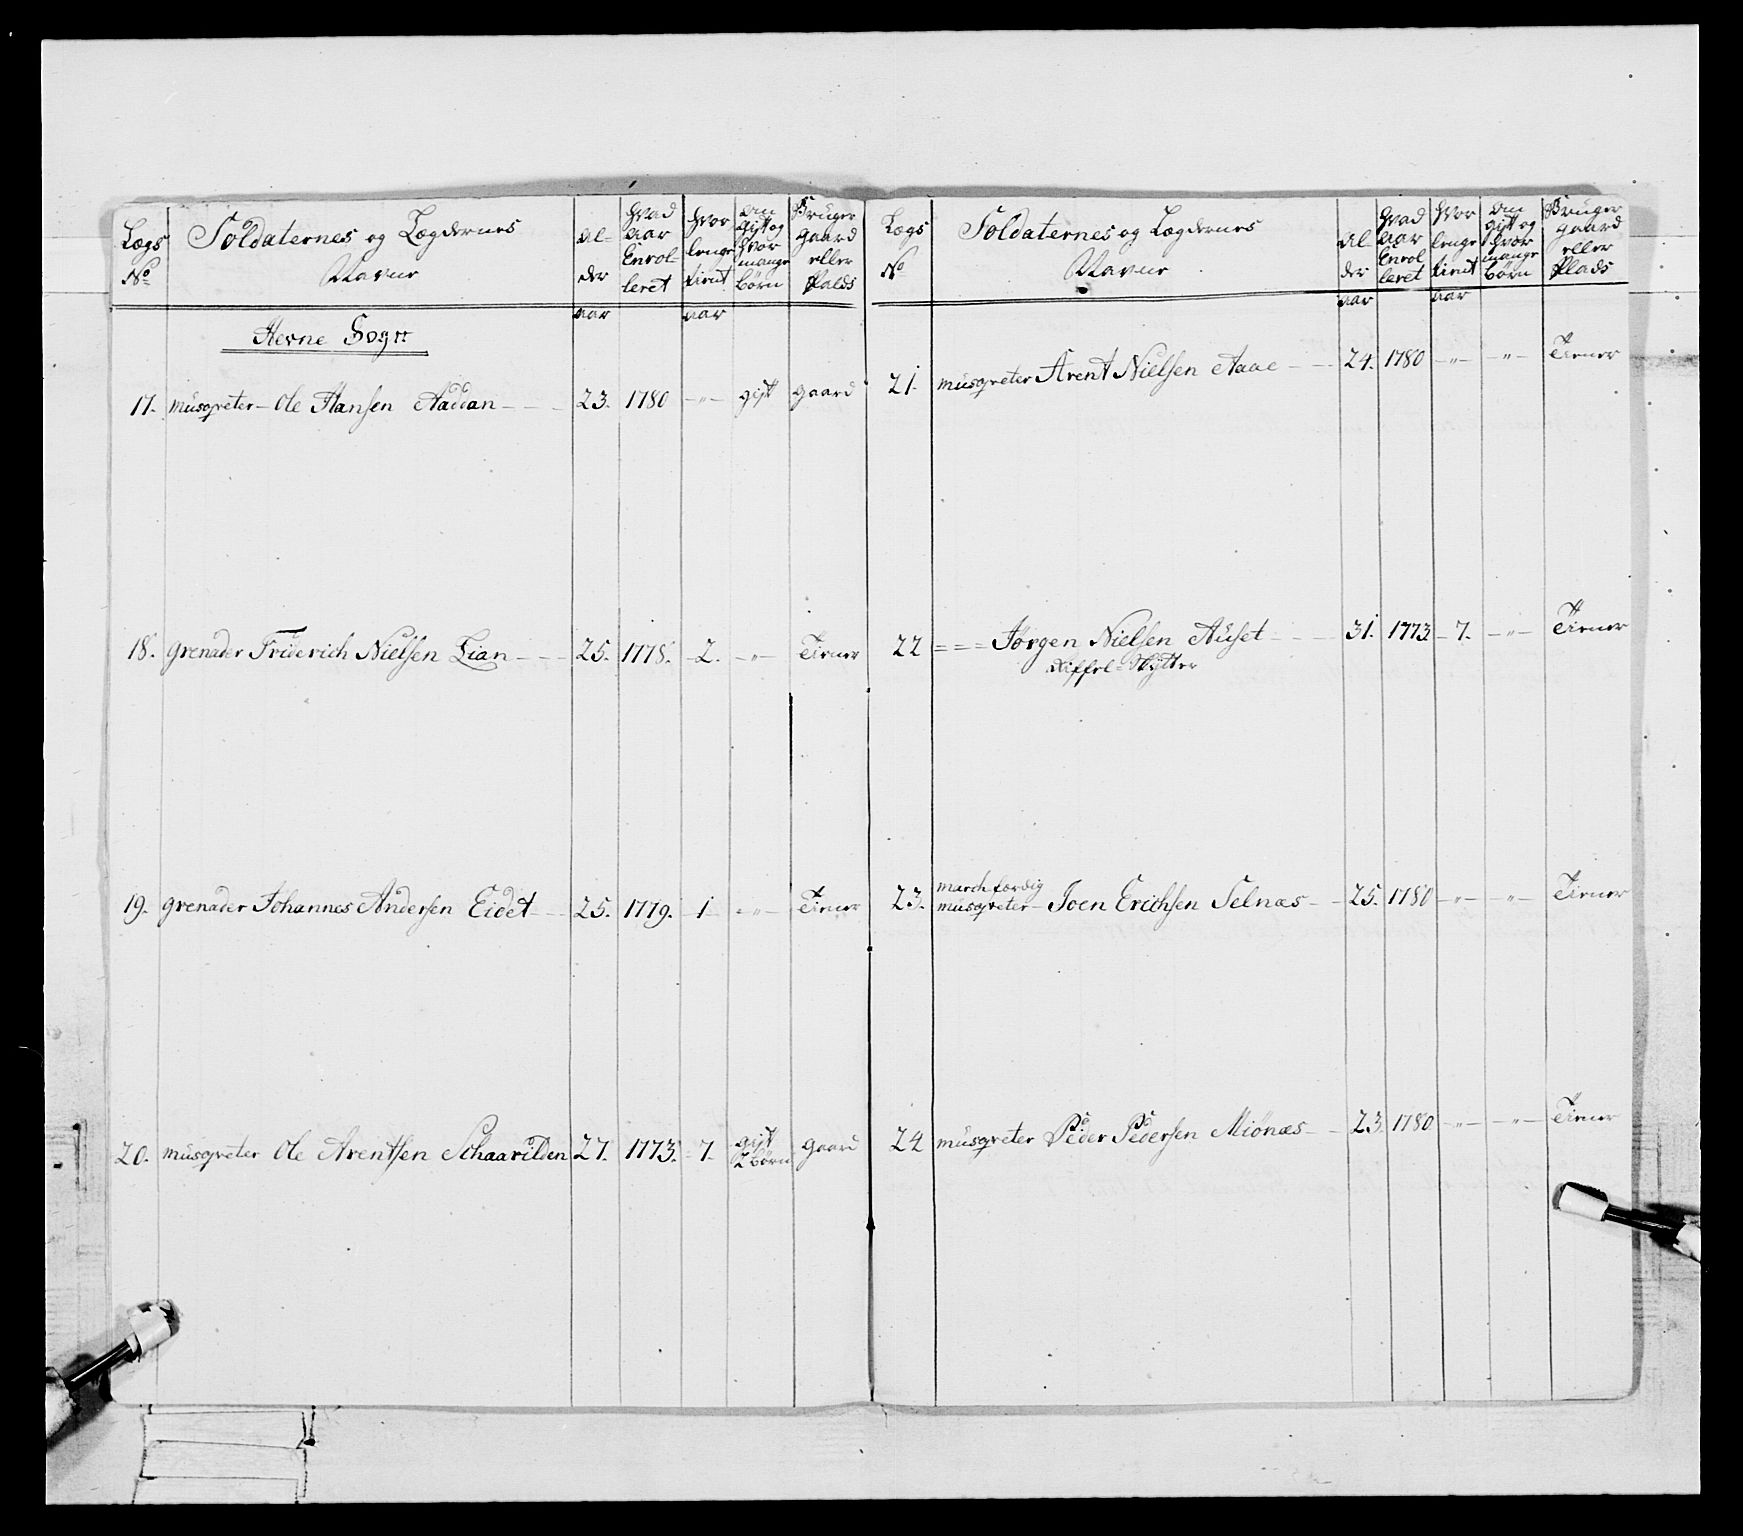 Lægs No
Soldaternes og Lægdernes Navne
Alder
Hvad Aar Enrolleret
Hvor lenge tient
Om gift og hvor mange børn
Bruger gaard eller Plads
aar aar
Herne Sogn
17. musqveter – Ole Hansen Aaddan – – – 23. 1780 – „ – gift gaard
18. grenader Friderich Nielsen Lian – – – 25. 1778. – 2. – „ – Tiener
19. grenader Johannes Andersen Eidet – – 25. 1779. – 1 – „ – Tiener
20. musqveter Ole Arentsen Schaarilden 27. 1773. – 7. gift 2 børn gaard
Lægs No
Soldaternes og Lægdernes Navne
Alder
Hvad Aar Enrolleret
Hvor lenge tient
Om gift og hvor mange børn
Bruger gaard eller Plads
aar aar
21. musqveter Arent Nielsen Aaae – – – 24. 1780 – „ – – „ – Tiener
22 = = = Jørgen Nielsen Auset – – – 31. 1773 – 7. – „ – Tiener
Riffel-Skytter
march færdig
23. musqveter – Joen Erichsen Selnæs – – 25. 1780 – „ – – „ – Tiener
24 musqveter Peder Pedersen Miønæs – – 23. 1780 – „ – – „ – Tiener